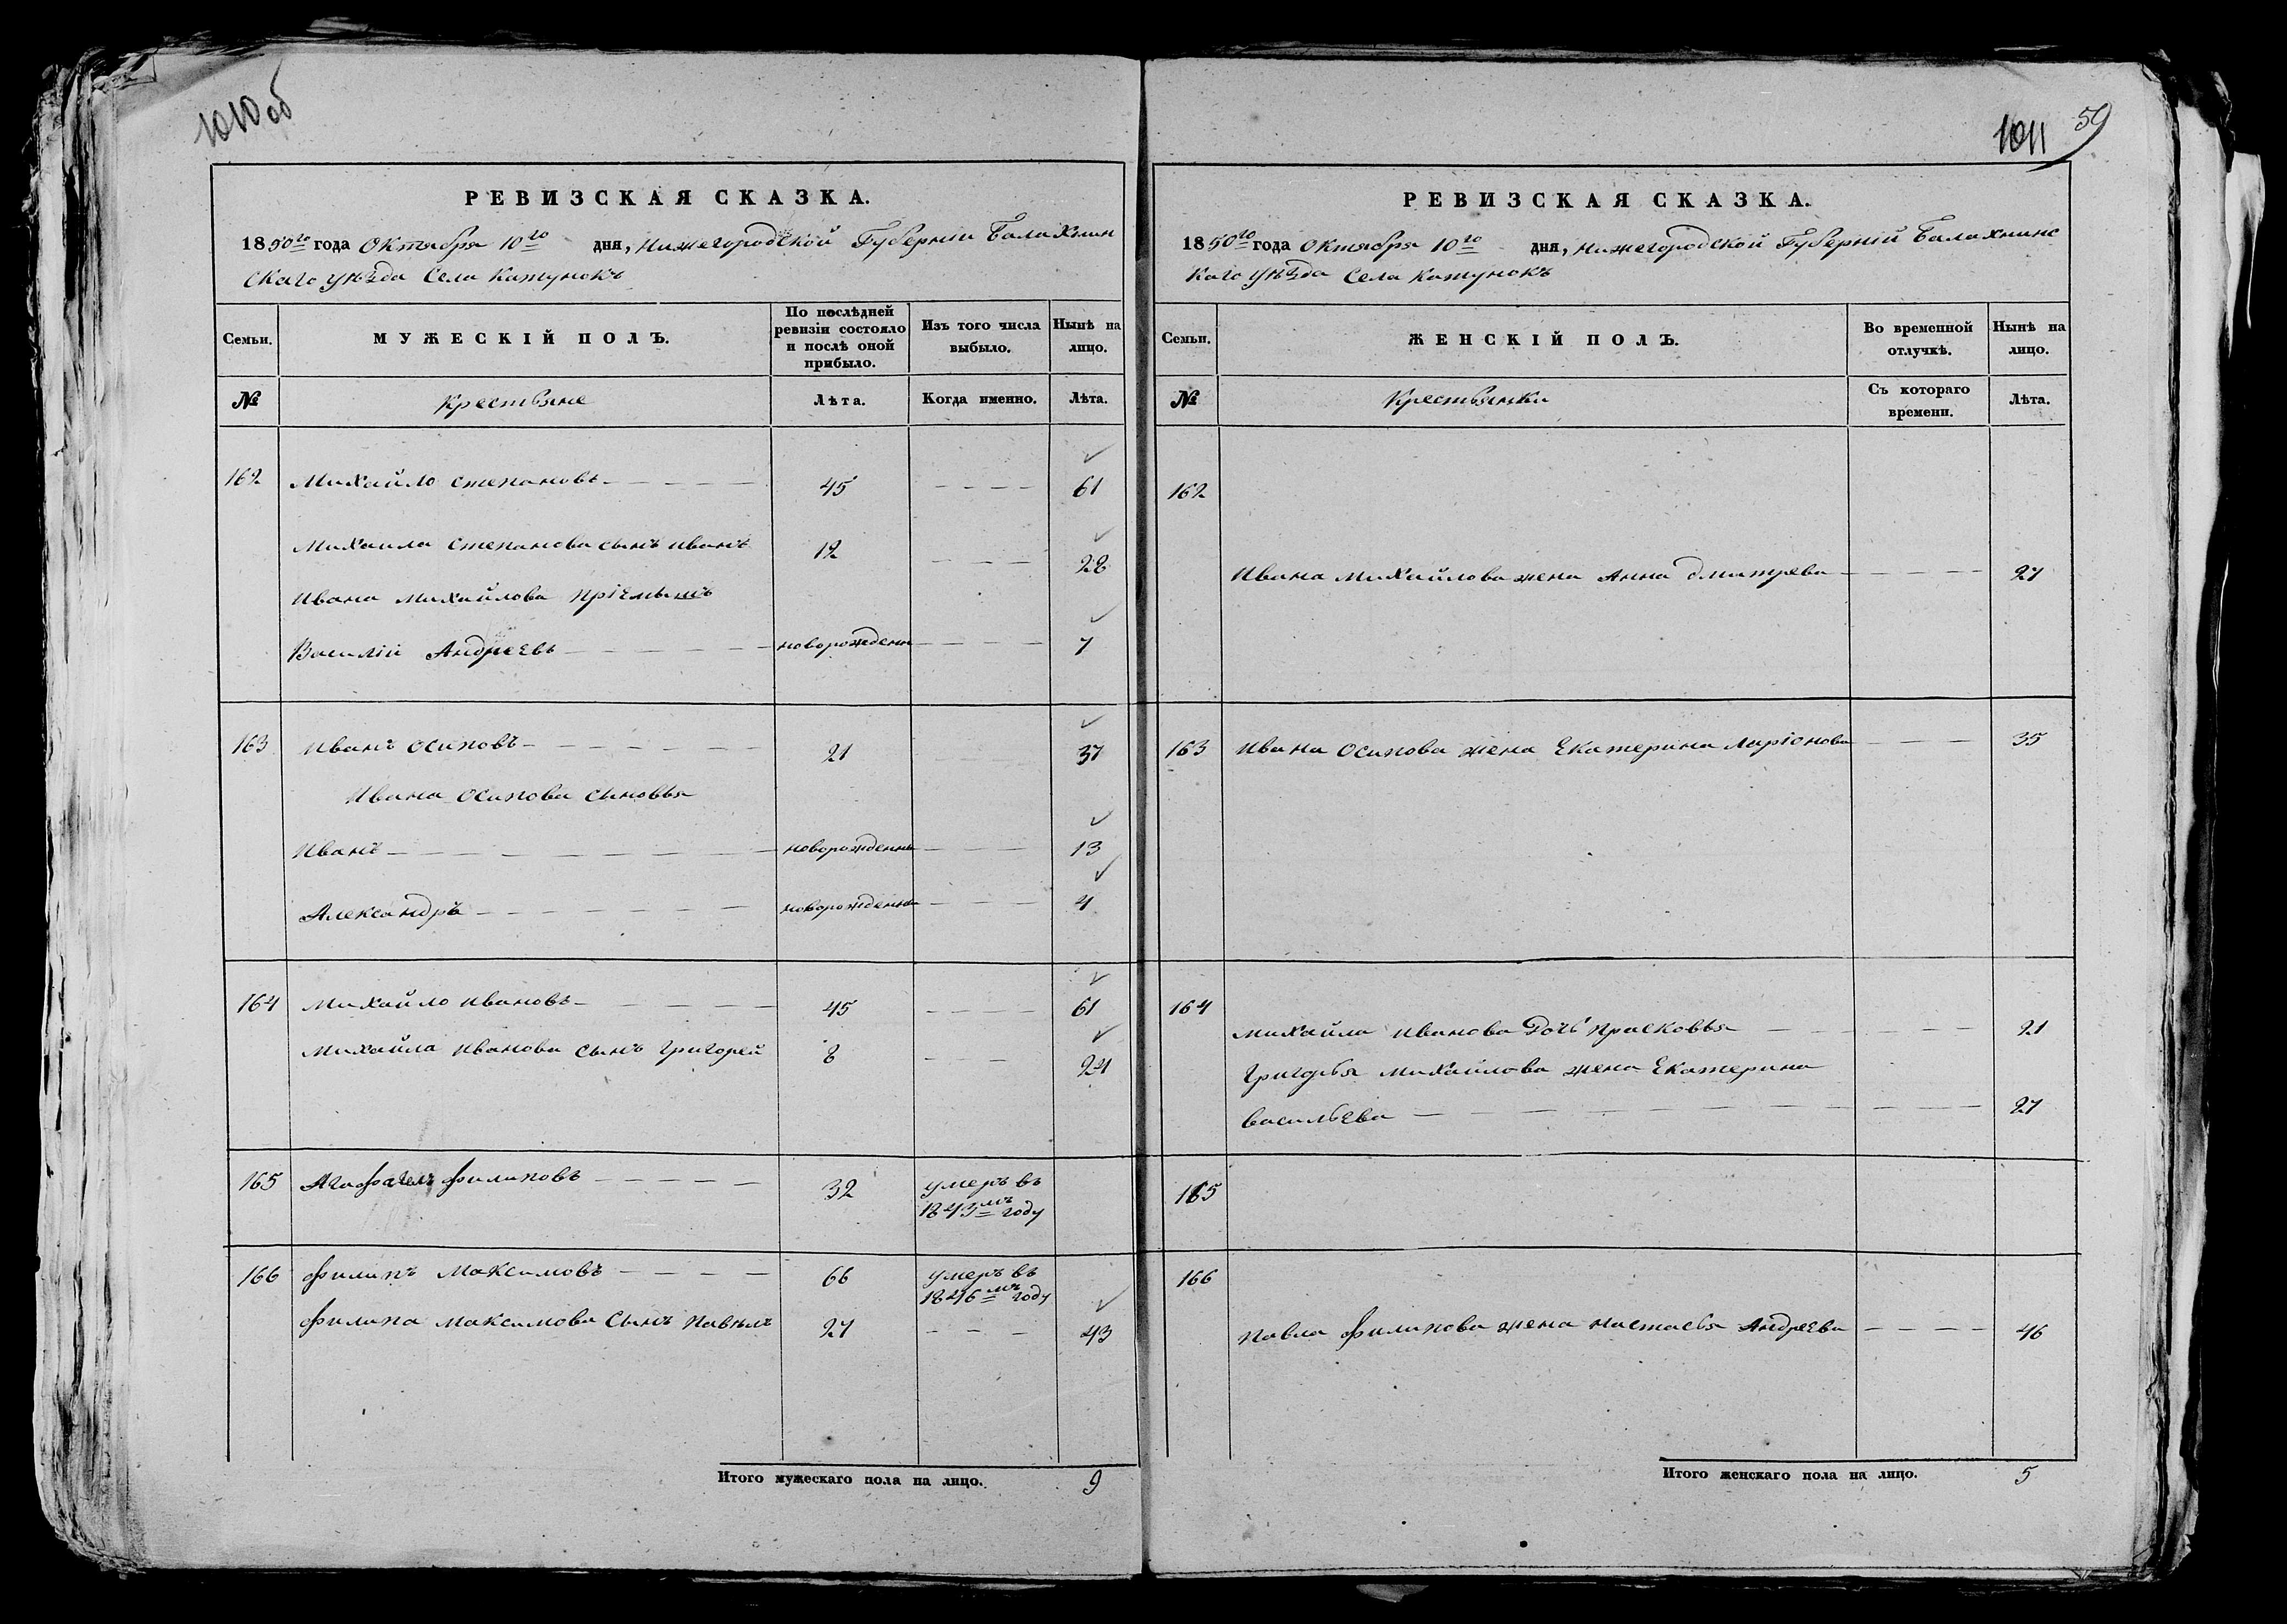 1010 об
РЕВИЗСКАЯ СКАЗКА.
1850го года Октября 10го дня, Нижегородской Губерніи Балахнин
скаго уѣзда Села Катунокъ
Семьи.
МУЖЕСКІЙ ПОЛЪ.
По послѣдней ревизіи состояло и послѣ оной прибыло.
Изъ того числа выбыло.
Нынѣ на лицо.
№
Крестьяне
Лѣта.
Когда именно.
Лѣта.
162 Михайло Степановъ 45 61
Михаила Степанова сынъ Иванъ 12 28
Ивана Михайлова пріемышъ
Василій Андреевъ новорожденн 7
163 Иванъ Осиповъ 21 37
Ивана Осипова сыновья
Иванъ новорожденны 13
Александръ новорожденны 4
164 Михайло Ивановъ 45 61
Михайла Иванова сынъ Григорей 8 24
165 Филиповъ 32 умеръ въ
1843мъ году
166 Филипъ Максимовъ 66 умеръ въ
1846мъ году
Филипа Максимова сынъ Павелъ 27 43
Итого мужескаго пола на лицо. 9
1011 59
РЕВИЗСКАЯ СКАЗКА.
1850го года Октября 10го дня, Нижегородской Губерній Балахнинс
каго уѣзда Села Катунокъ
Семьи.
ЖЕНСКІЙ ПОЛЪ.
Во временной отлучкѣ.
Нынѣ на лицо.
№
Крестьянки
Съ котораго времени.
Лѣта.
162
Ивана Михайлова жена Анна Дмитрева 27
163 Ивана Осипова жена Екатерина Ларіонова 35
164
Михайла Иванова дочь Прасковья 21
Григорья Михайлова жена Екатерина
Васильева 27
165
166
Павла Филипова жена Настасья Андреева 46
Итого женскаго пола на лицо. 5